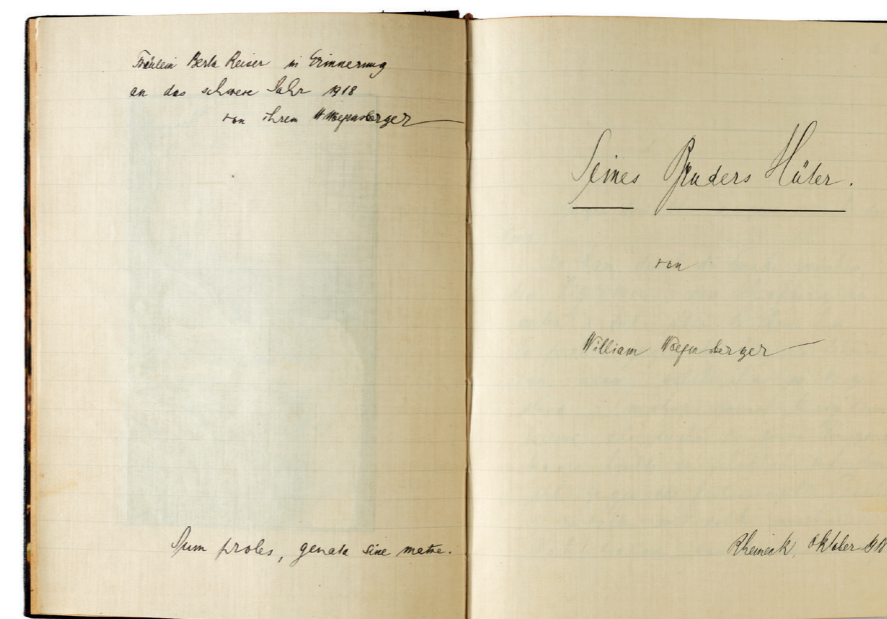 Fräulein Berta Reiser in Erinnerung
an das schwere Jahr 1918
von ihrem W. Wagensberger
Spum proles, genata sine matre.
Seines Bruders Hüter.
von
William Wagensberger
Rheineck, Oktober 1918